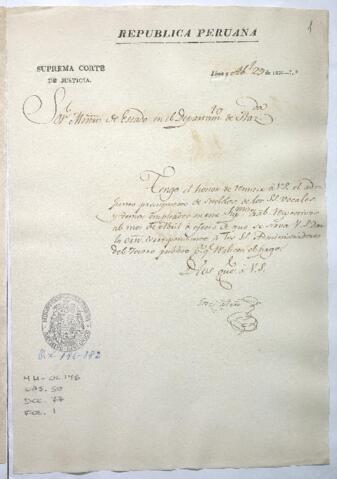 REPUBLICA PERUANA
1
SUPREMA CORTE
DE JUSTICIA.
Lima y Abl. 23 de 182
Sor. Mtro. de Estado en el Departamto. de Hazda.
Tengo el honor de remitir á V.S. el ad-
junto presupuesto de sueldos de los SS. Vocales
y demas empleados en este Sup.mo Trib.
al mes de Abril á efecto de que se sirva V.S. dar la
orn. correspondiente á los SS. Administradores
del Tesoro publico pa. qe. el pago.
Dios gue. á V.S.
O.L. 146-882
MH-OL 146
CAJ. 50
DOC. 77
FOL. 1